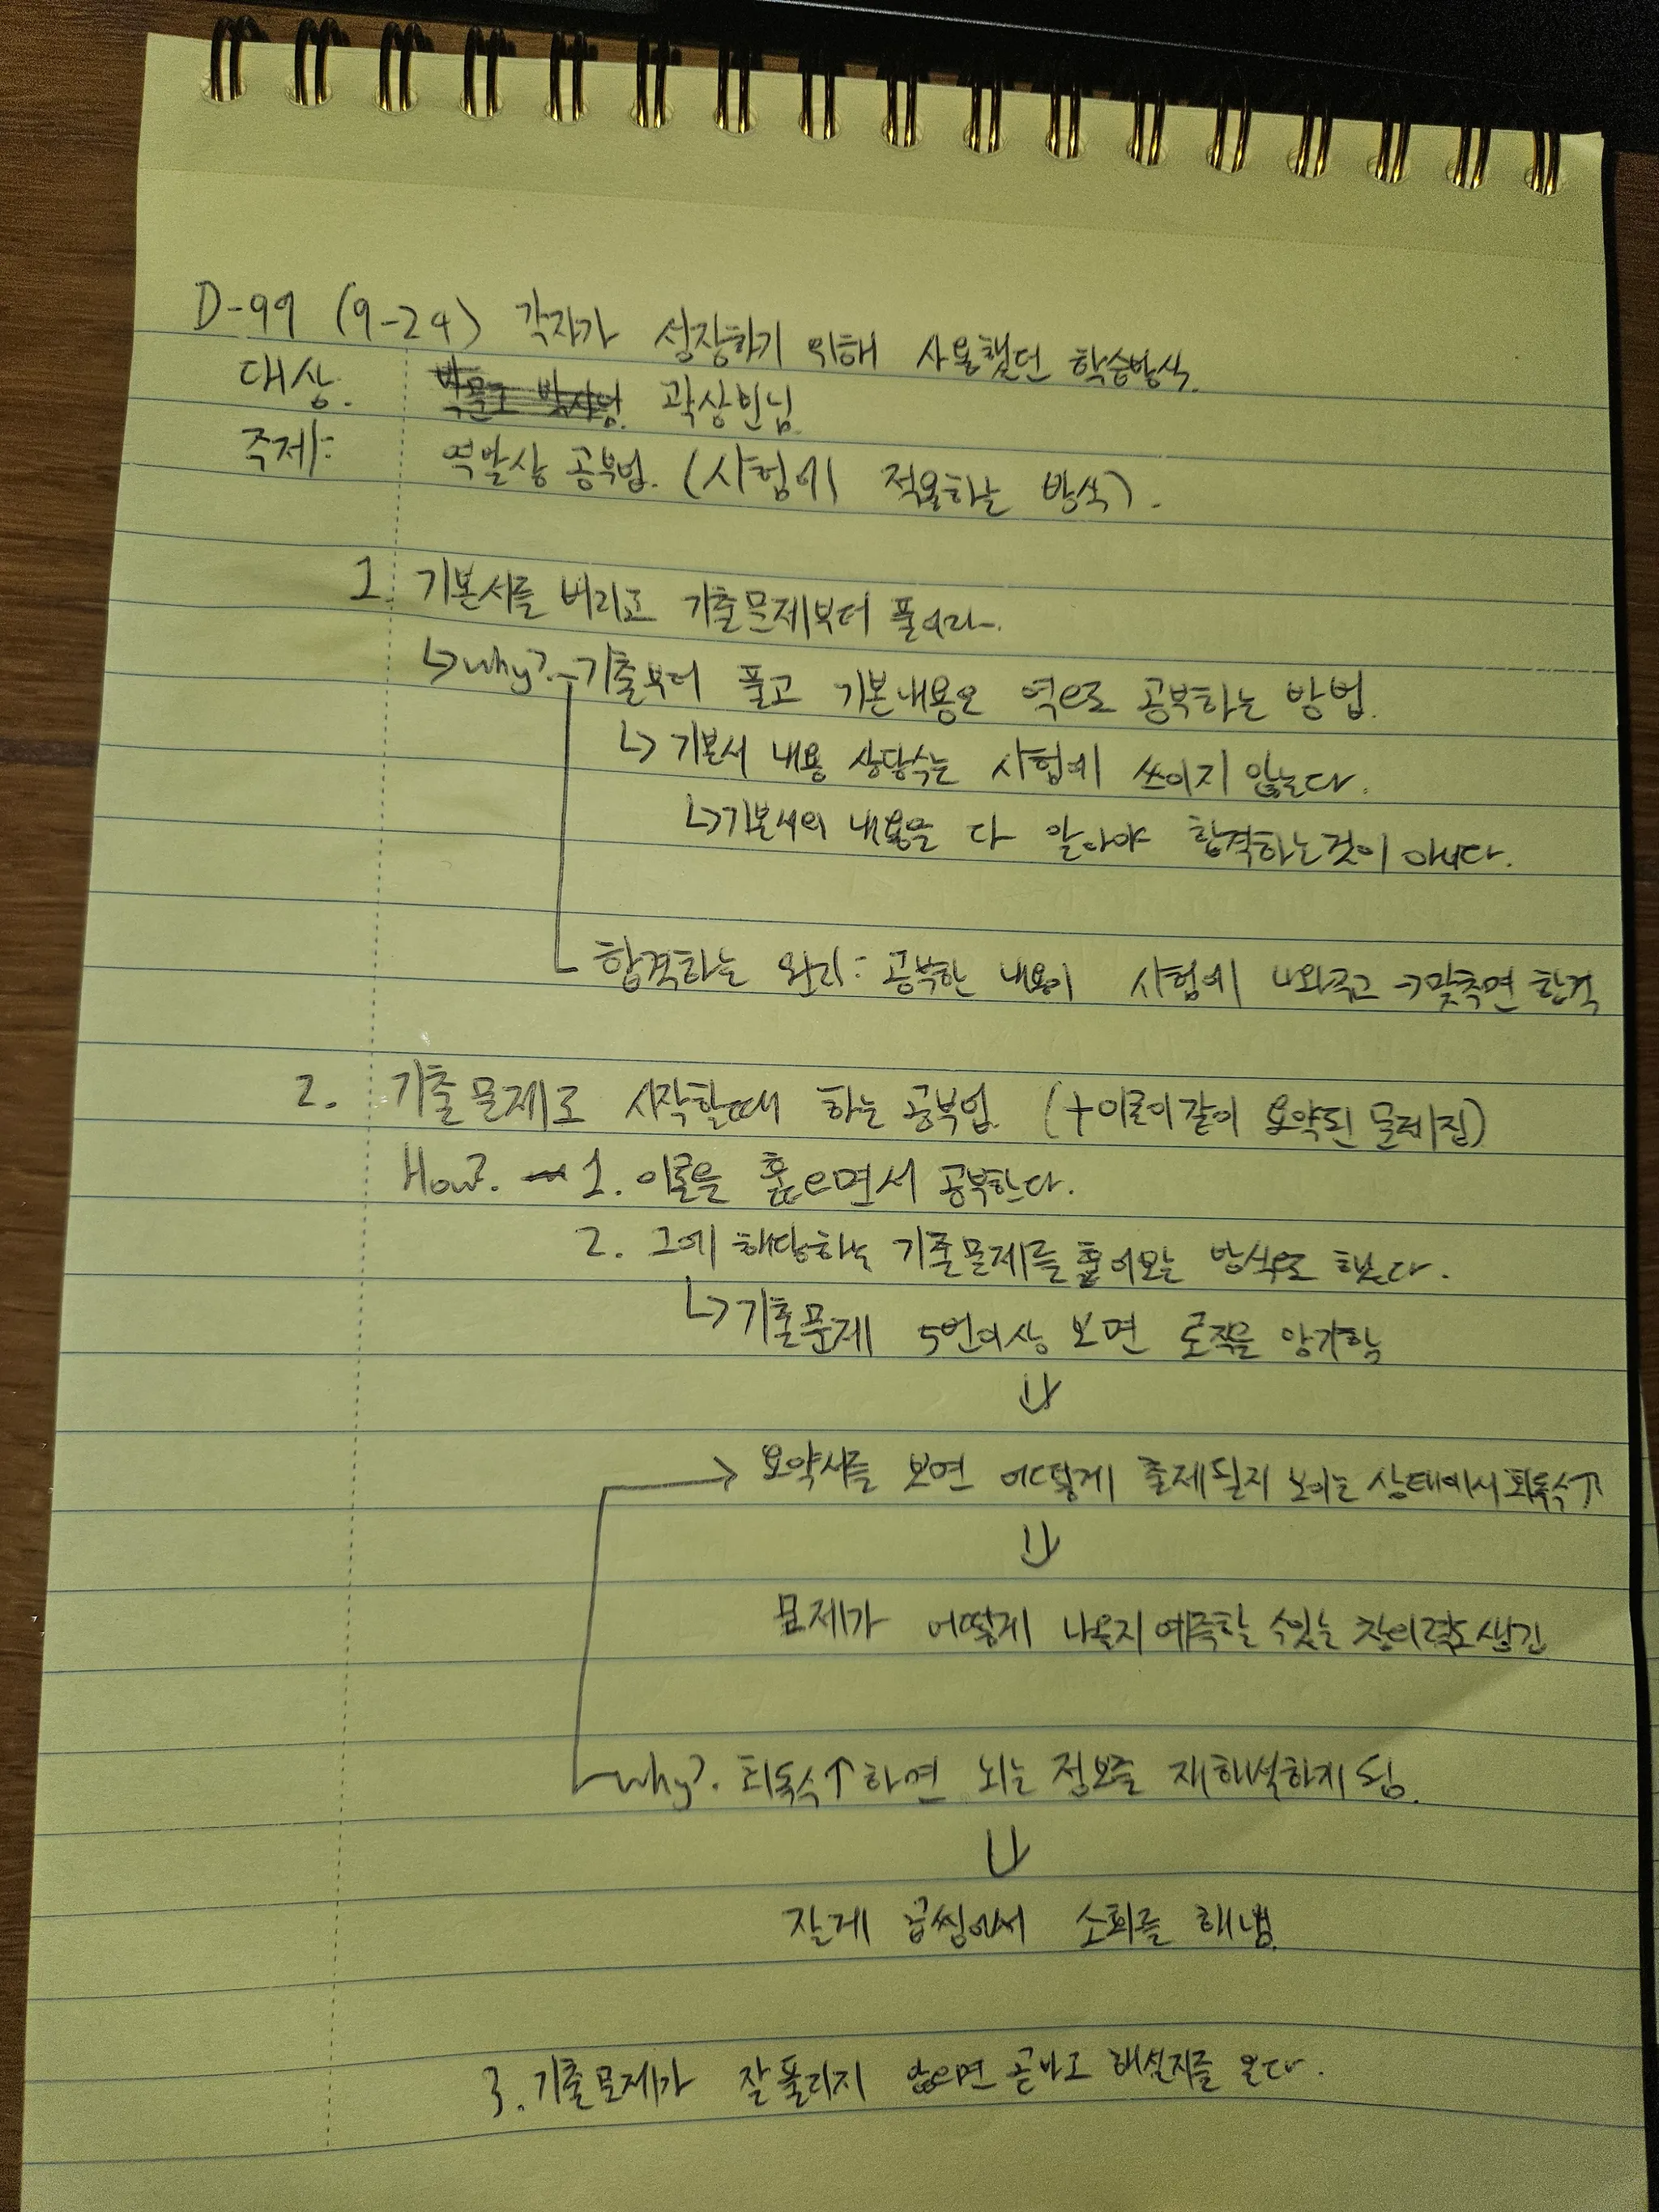 D-99 (9-24) 각자가 성장하기 위해 사용했던 학습방식.
대상. 곽상빈님.
주제: 역발상 공부법. (시험에 적용하는 방식).
1. 기본서를 버리고 기출문제부터 풀어라.
↳why?. 기출부터 풀고 기본내용은 역으로 공부하는 방법.
↳ 기본서 내용 상당수는 시험에 쓰이지 않는다.
↳기본서의 내용을 다 알아야 합격하는것이 아니다.
합격하는 원리: 공부한 내용이 시험에 나와주고 →맞추면 합격
2. 기출문제로 시작할때 하는 공부법. (+이론이같이 요약된 문제집)
How?. 1. 이론을 훑으면서 공부한다.
2. 그에 해당하는 기출문제를 훑어보는 방식으로 했다.
↳기출문제 5번이상 보면 로직을 암기함
⇓
→ 요약서를 보면 어떻게 출제될지 보이는 상태에서 회독수↑
⇓
문제가 어떻게 나올지 예측할 수있는 창의력도 생김
why?. 회독수↑하면 뇌는 정보를 재해석하게 됨.
⇓
잘게 곱씹어서 소화를 해냄.
3. 기출문제가 잘 풀리지 않으면 곧바로 해설지를 본다.